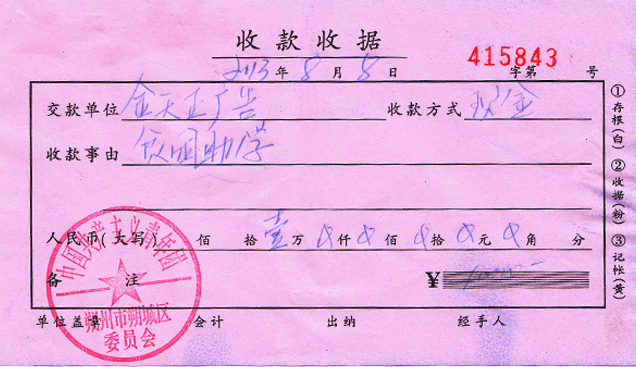 收款收据
415843
2013年8月8日 字第 号
交款单位 金天正广告 收款方式 现金
收款事由 贫困助学
人民币(大写) 佰 拾 壹 万 0 仟 0 佰 0 拾 0 元 0 角 分
备注 ¥ 10000-
单位盖章 会计 出纳 经手人
①存根(白) ②收据(粉) ③记帐(黄)
中国共产主义青年团
朔州市朔城区
委员会